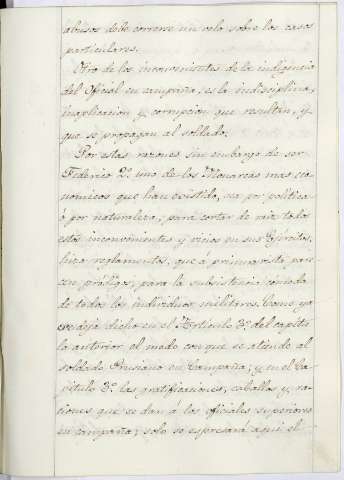 abusos debe correrse un velo sobre los casos
particulares.
Otro de los inconvenientes de la indigencia
del Oficial en campaña, es la indisciplina,
inaplicacion y corrupcion que resultan, y
que se propagan al soldado.
Por estas razones sin embargo de ser
Federico 2º uno de los Monarcas mas eco-
nomicos que han existido, sea por politica
ó por naturaleza; para cortar de raiz todos
estos inconvenientes y vicios en sus Ejércitos,
hizo reglamentos, que á primera vista pare-
cen pródigos, para la subsistencia cómoda
de todos los individuos militares. Como ya
se deja dicho en el Articulo 3º del capitu-
lo anterior el modo con que se atiende al
soldado Prusiano en Campaña; y en el Ca-
pitulo 3º las gratificaciones, caballos y ra-
ciones que se dan á los oficiales superiores
en campaña; solo se espresará aqui el